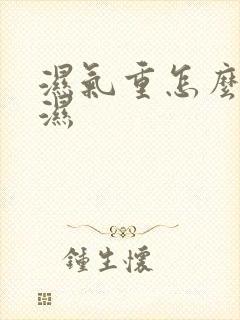 濕氣重怎麼
濕
鍾生懷